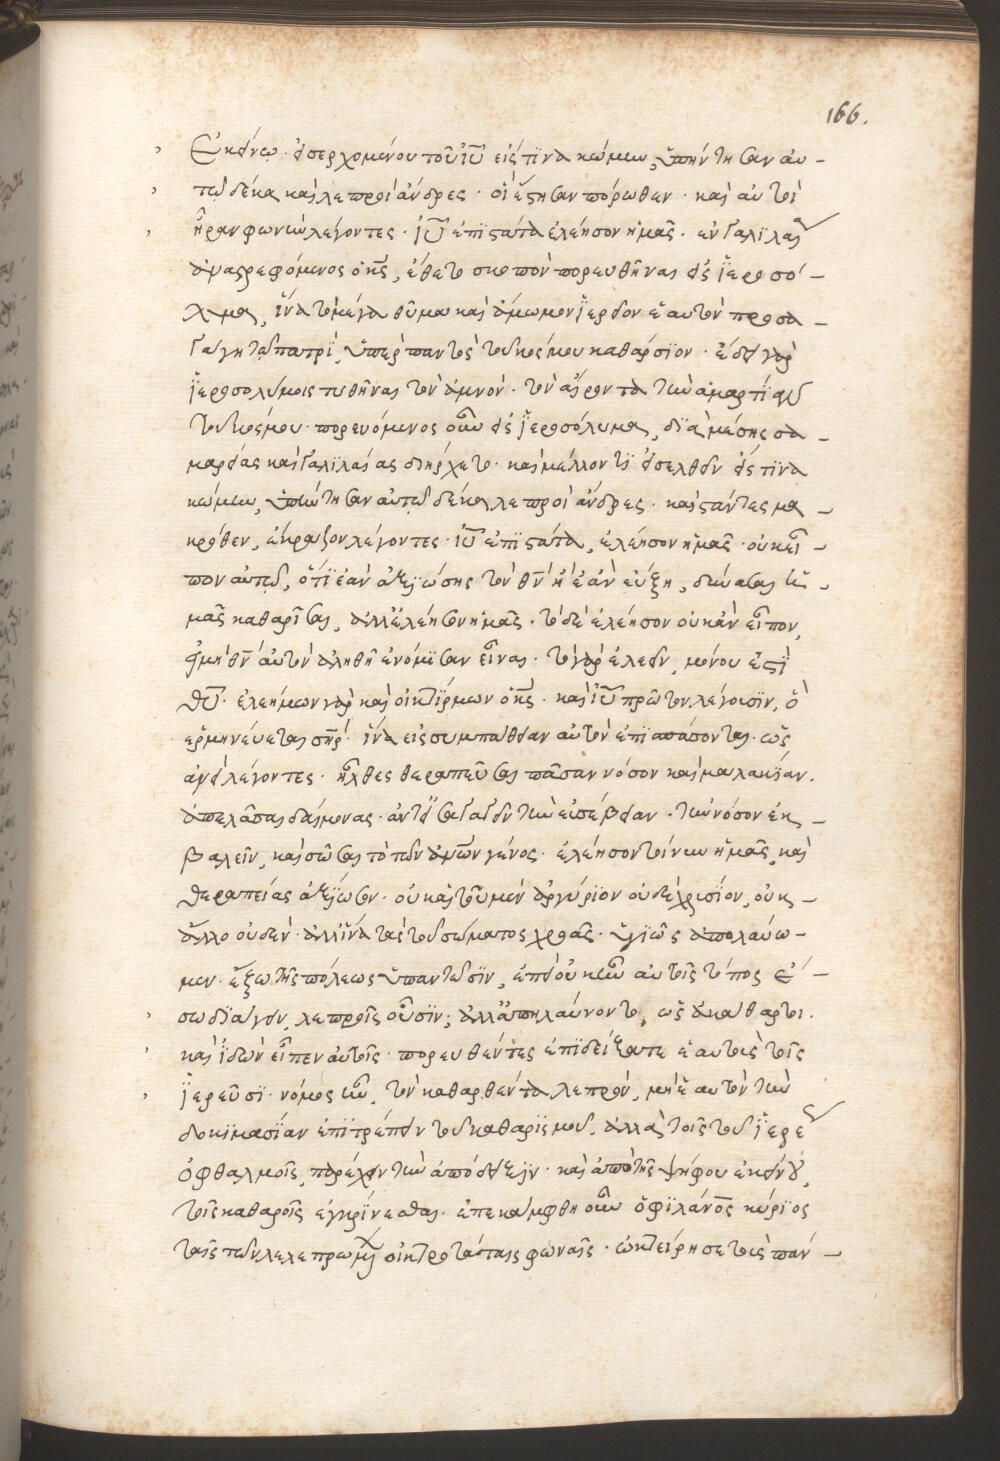 166.
ἐκείνω· εἰσερχομένου τοῦ ἰῦ εἰς τϊνα κώμην, ὑπήντησαν αυ-
τῶ δέκα καὶ λεπροὶ ἄνδρες· οἱ ἔστησαν πόρωθεν· καὶ αυτοὶ
ἦραν φωνὴν λέγοντες· ἰῦ ἐπϊστάτα ἐλέησον ἡμᾶς· εν γαλϊλαία
ἀναστρεφόμενος ὁ κς, έθετο σκοπὸν πορευθῆναι εἰς ϊεροσό-
λυμα, ἵνα τὸ μέγα θῦμα καὶ ἄμωμον ϊερεῖον ἑαυτὸν προσα-
γάγη τῶ πατρὶ, ὑπὲρ παντὸς τοῦ κόσμου καθάρσϊον· ἔδει γὰρ
ϊεροσολύμοις τυθῆναι τὸν ἀμνὸν· τὸν αἴροντα τὴν ἁμαρτίαν
τοῦ κόσμου· πορευόμενος οὖν εἰς ϊεροσόλυμα, δϊὰ μέσης σα-
μαρείας καὶ γαλϊλαίας διήρχετο· καὶ μέλλοντϊ εἰσελθεῖν εἴς τϊνα
κώμην, ὑπήντησαν αὐτῶ δέκα λεπροὶ ἄνδρες· καὶ στάντες μα-
κρόθεν, ἔκραζον λέγοντες· ἰῦ ἐπϊστάτα, ἐλέησον ἡμᾶς· οὐκ εἶ-
πον αὐτῶ, ὅτϊ ἐὰν ἀξϊώσης τὸν θν ἢ ἐὰν εύξη, δύνασαι ἡ-
μᾶς καθαρῖσαι, ἀλλ' ἐλέησον ἡμᾶς· τὸ δὲ ἐλέησον οὐκ ἂν εἶπον,
εἰ μὴ θν αὐτὸν ἀληθῆ ἐνόμϊσαν εἶναι· τὸ γὰρ ἐλεεῖν, μόνου ἐστὶ
θῦ· ἐλεήμων γὰρ καὶ οἰκτϊρμων ὁ κς· καὶ ἰῦ πρῶτον λέγουσϊν, ὃ
ἑρμηνεύεται σηρ· ἵνα εἰς συμπάθειαν αὐτὸν ἐπϊσπάσονται· ὡς
ἀνεὶ λέγοντες· ἦλθες θεραπεῦσαι πᾶσαν νόσον καὶ μαλακίαν.
ἀπελᾶσαι δαίμονας· ἀντεισαγαγεῖν τὴν εὐσέβειαν· τὴν νόσον ἐκ-
βαλεῖν, καὶ σῶσαι τὸ τῶν ἀνων γένος· ἐλέησον τοίνυν ἡμᾶς, καὶ
θεραπείας ἀξϊωσον· οὐκ αἰτοῦμεν ἀργύρϊον οὐδὲ χρυσίον, οὐκ-
ἄλλο οὐδὲν· ἀλλ' ἵνα τὰς τοῦ σώματος χροᾶς· ὑγϊῶς ἀπολαύω-
μεν· ἔξω τῆς πόλεως ὑπαντῶσϊν, ἐπεὶ οὐκ ἦν αὐτοῖς τόπος ἔ-
σω δϊάγειν, λεπροῖς οὖσϊν; ἀλλ' ἀπηλαύνοντο, ὡς ἀκάθαρτοι.
καὶ ϊδὼν εἶπεν αὐτοῖς· πορευθέντες ἐπϊδείξατε ἑαυτοὺς τοῖς
ϊερεῦσι· νόμος ἦν, τὸν καθαρθέντα λεπρὸν, μὴ ἑαυτὸν τὴν
δοκϊμασίαν ἐπϊτρέπειν τοῦ καθαρϊσμοῦ. ἀλλὰ τοῖς τοῦ ϊερέως
ὀφθαλμοῖς, παρέχειν τὴν ἀπόδειξϊν· καὶ ἀπὸ τῆς ψήφου ἐκείνου,
τοῖς καθαροῖς εγκρϊνεσθαι· ἐπεκάμφθη οὖν ὁ φϊλάνος κύρϊος
ταῖς τῶν λελεπρωμένων οἰκτροτάταις φωναῖς· ὠκτείρησε τοὺς παν-